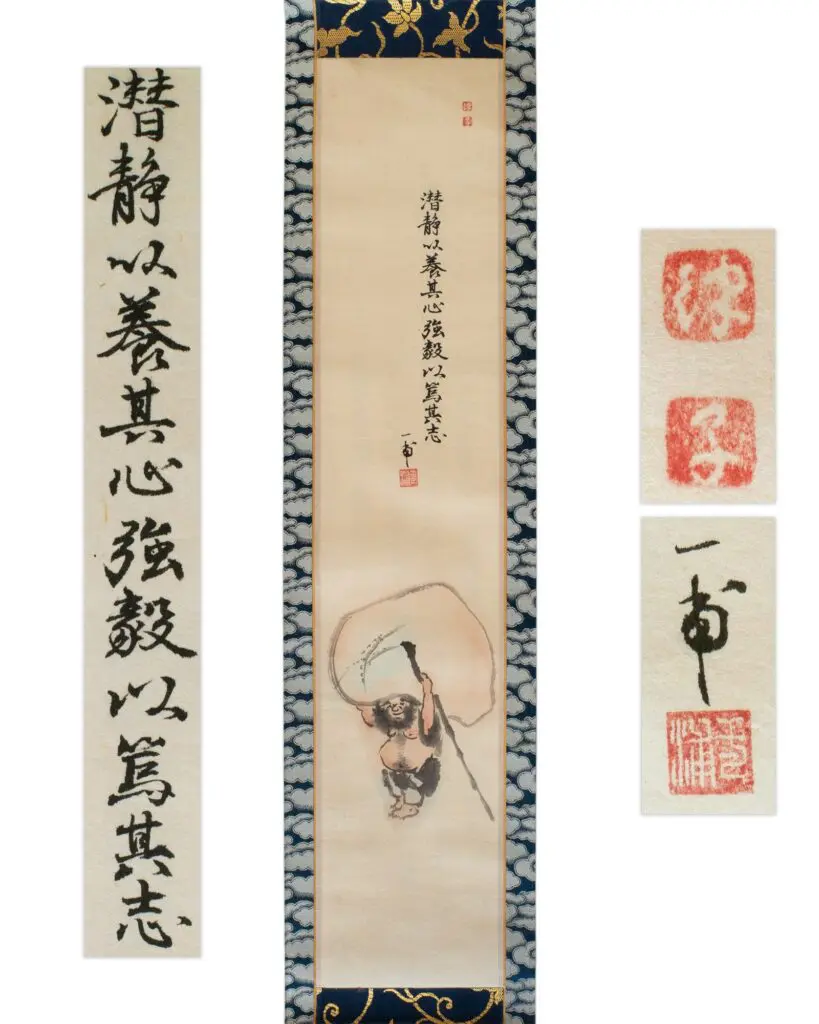 潜静以養其心強毅以篤其志
潜静以養其心強毅以篤其志
一甫
一甫